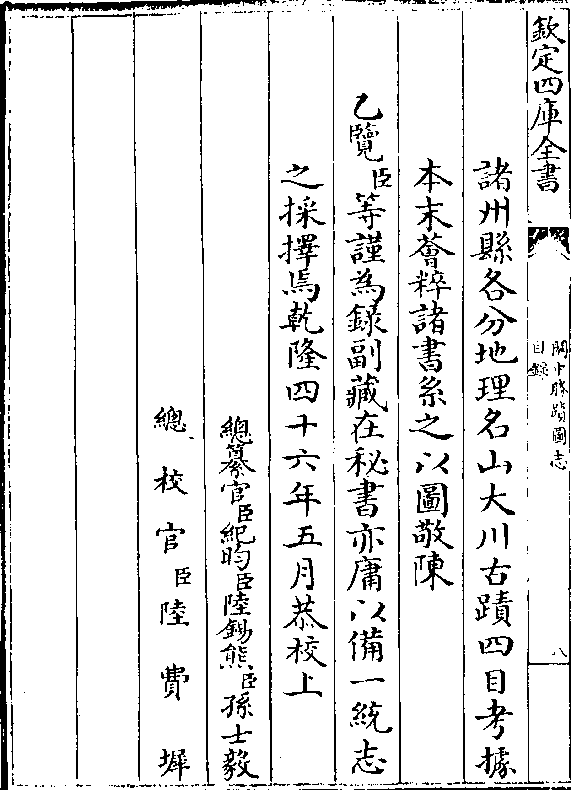 欽定四庫全書
關中勝蹟圖志
目錄
八
諸州縣各分地理名山大川古蹟四目考據
本末薈粹諸書系之以圖敬陳
乙覽臣等謹為錄副藏在秘書亦庸以備一統志
之採擇焉乾隆四十六年五月恭校上
總纂官臣紀昀臣陸錫熊臣孫士毅
總校官臣陸費墀